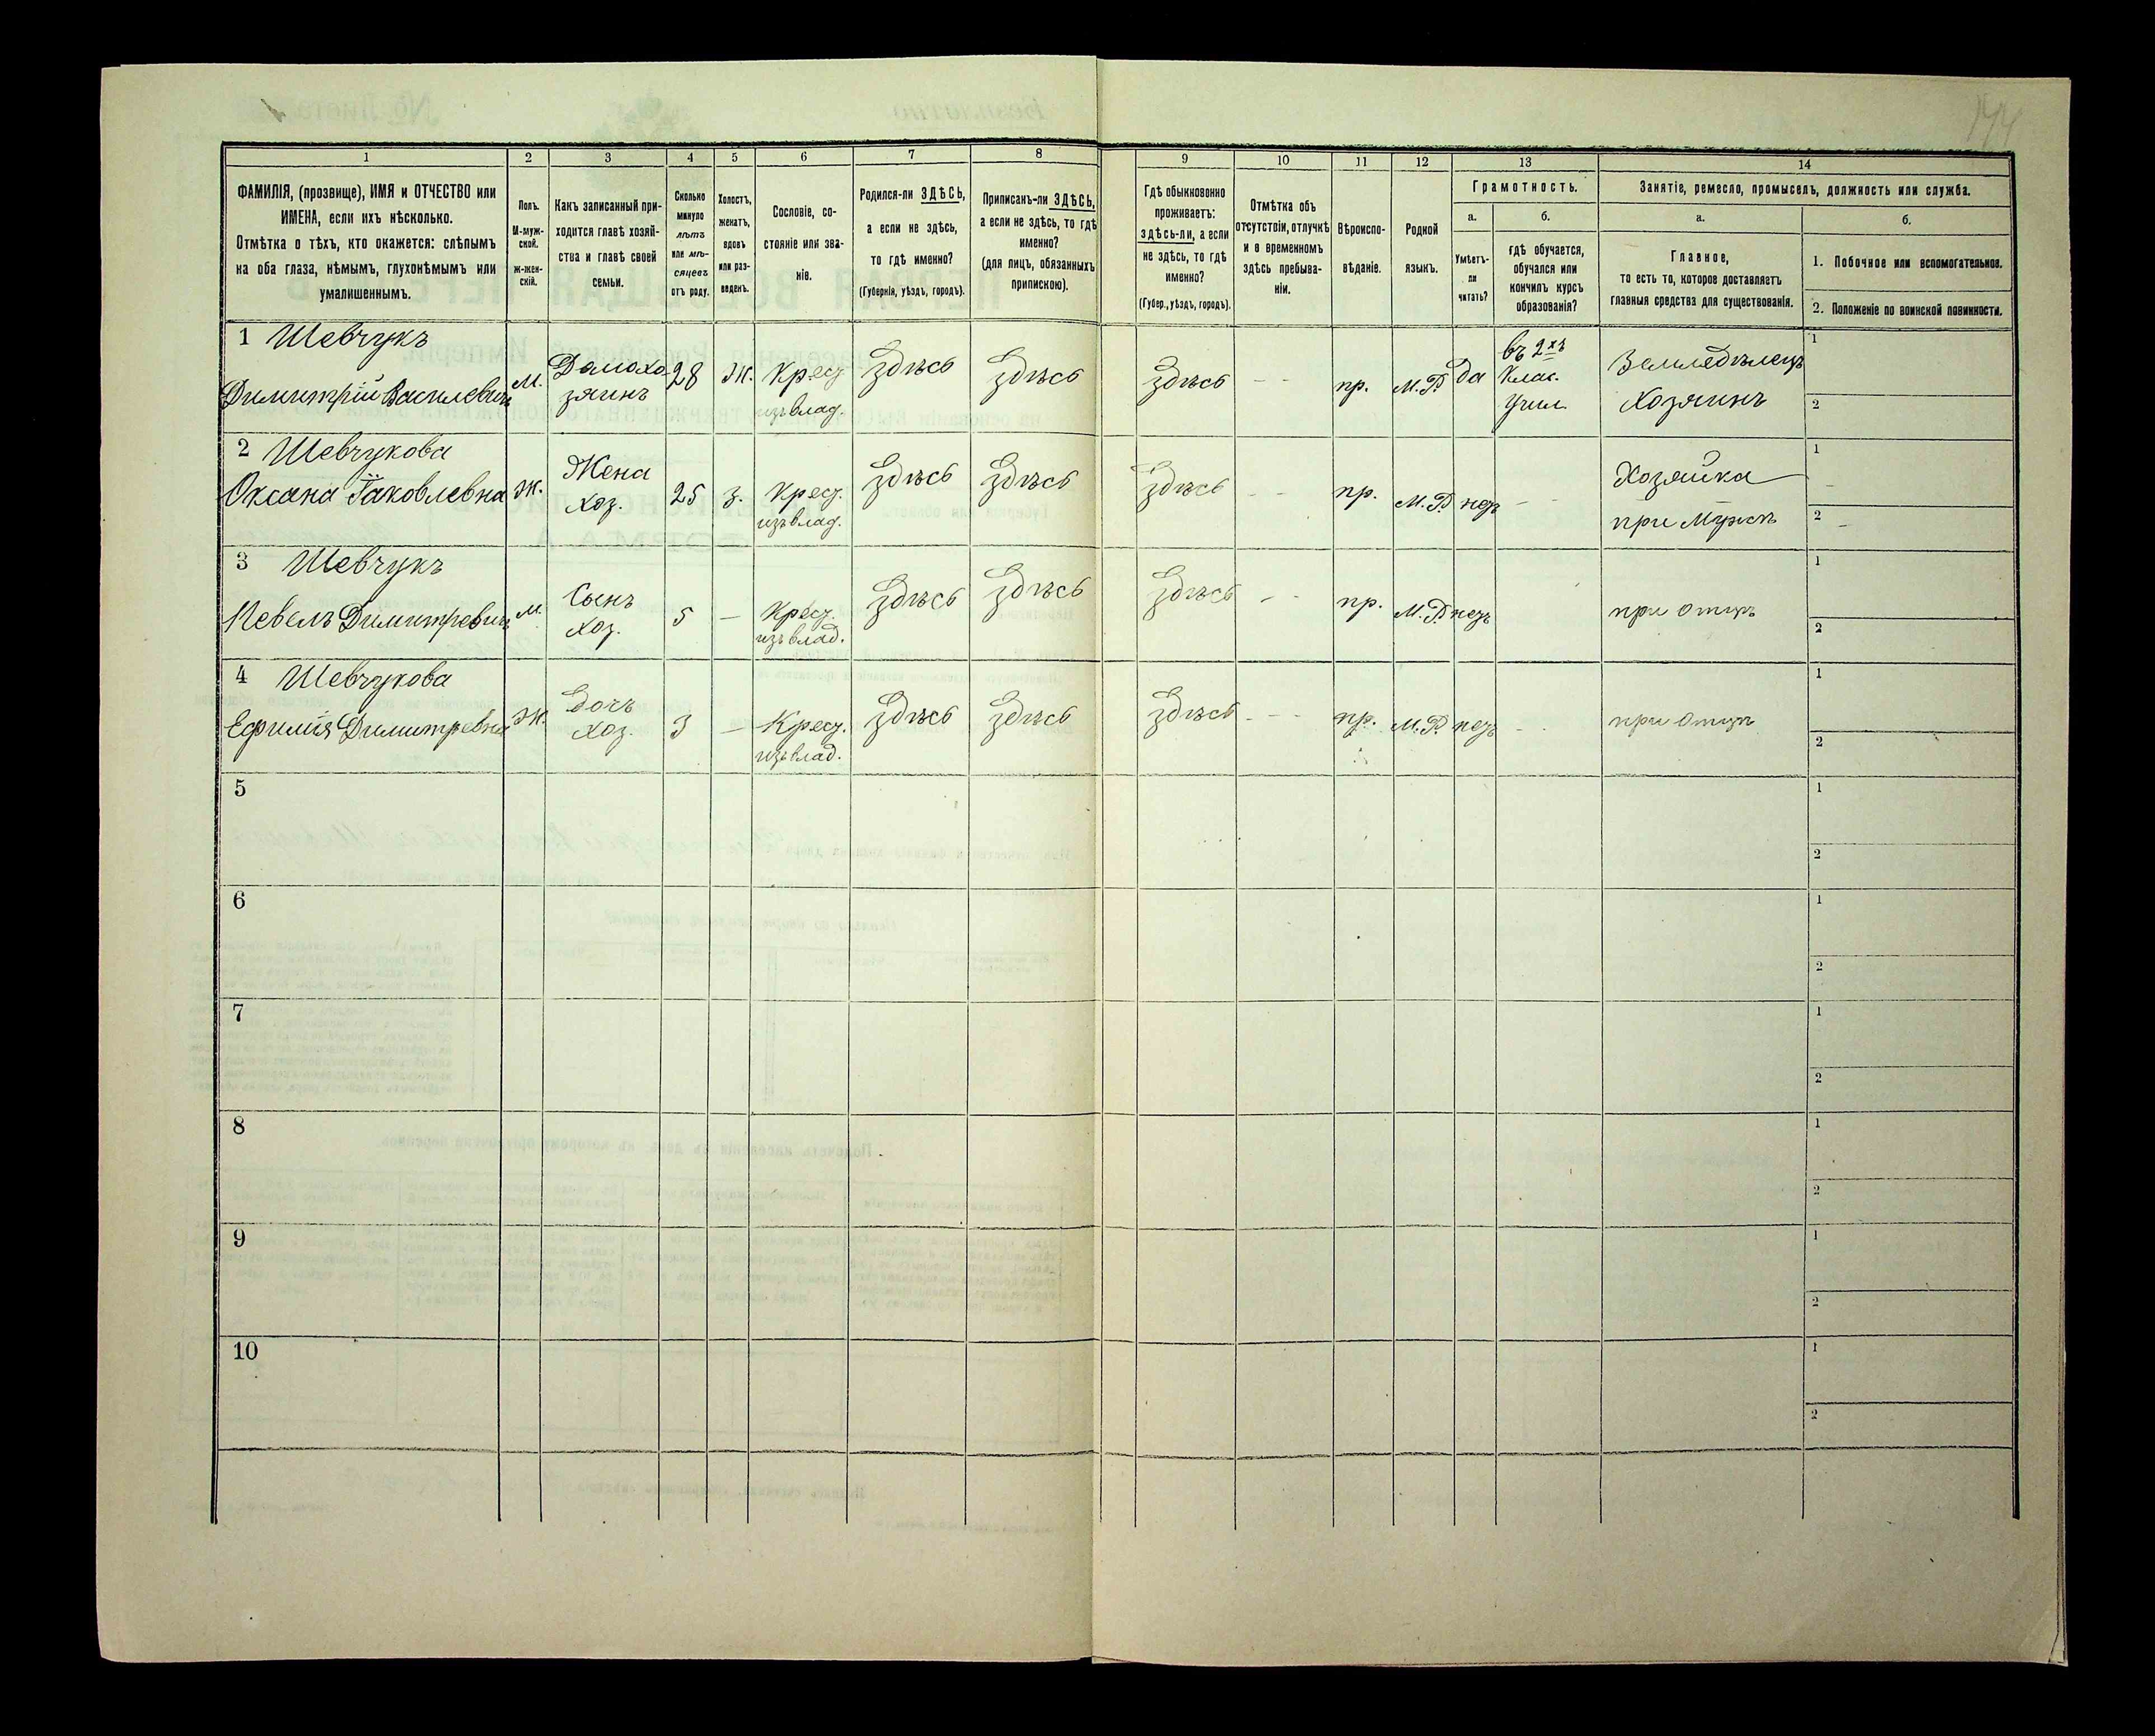 1 2 3 4 5 6 7 8 9 10 11 12 13 14
ФАМИЛІЯ, (прозвище), ИМЯ и ОТЧЕСТВО или
ИМЕНА, если ихъ нѣсколько.
Отмѣтка о тѣхъ, кто окажется: слѣпымъ
на оба глаза, нѣмымъ, глухонѣмымъ или
умалишеннымъ.
Полъ.
М-муж-
ской.
ж-жен-
скій.
Какъ записанный при-
ходится главѣ хозяй-
ства и главѣ своей
семьи.
Сколько
минуло
лѣтъ
или мѣ-
сяцевъ
отъ роду.
Холостъ,
женатъ,
вдовъ
или раз-
веденъ.
Сословіе, со-
стояніе или зва-
ніе.
Родился-ли ЗДѢСЬ,
а если не здѣсь,
то гдѣ именно?
(Губернія, уѣздъ, городъ).
Приписанъ-ли ЗДѢСЬ,
а если не здѣсь, то гдѣ
именно?
(для лицъ, обязанныхъ
припискою).
Гдѣ обыкновенно
проживаетъ:
здѣсь-ли, а если
не здѣсь, то гдѣ
именно?
(Губер., уѣздъ, городъ).
Отмѣтка объ
отсутствіи, отлучкѣ
и о временномъ
здѣсь пребыва-
ніи.
Вѣроиспо-
вѣданіе.
Родной
языкъ.
Грамотность.
а.
Умѣетъ-
ли
читать?
б.
гдѣ обучается,
обучался или
кончилъ курсъ
образованія?
Занятіе, ремесло, промыселъ, должность или служба.
а.
Главное,
то есть то, которое доставляетъ
главныя средства для существованія.
б.
1. Побочное или вспомогательное.
2. Положеніе по воинской повинности.
1 Шевчукъ
Димитрій Василевичъ
м.
Домохо
зяинъ
28
Ж.
Крес.
изъ влад.
Здѣсь
Здѣсь
Здѣсь
- -
пр.
М.Р.
да
въ 2хъ
Клас.
Учил.
Земледѣлецъ
Хозяинъ
1
2
2 Шевчукова
Оксана Іаковлевна
Ж.
Жена
хоз.
25
З.
Крес.
изъ влад.
Здѣсь
Здѣсь
Здѣсь
- -
пр.
М.Р.
- -
Хозяйка
при Мужѣ
1 -
2 -
3 Шевчукъ
Павелъ Димитревичъ
м.
Сынъ
хоз.
5
-
Крес.
изъ влад.
Здѣсь
Здѣсь
Здѣсь
- -
пр.
М.Р.
при отцѣ
1
2
4 Шевчукова
Ефимія Димитревна
Ж.
Дочь
хоз.
3
-
Крес.
изъ влад.
Здѣсь
Здѣсь
Здѣсь
- - -
пр.
М.Р.
- -
при отцѣ
1
2
5
1
2
6
1
2
7
1
2
8
1
2
9
1
2
10
1
2